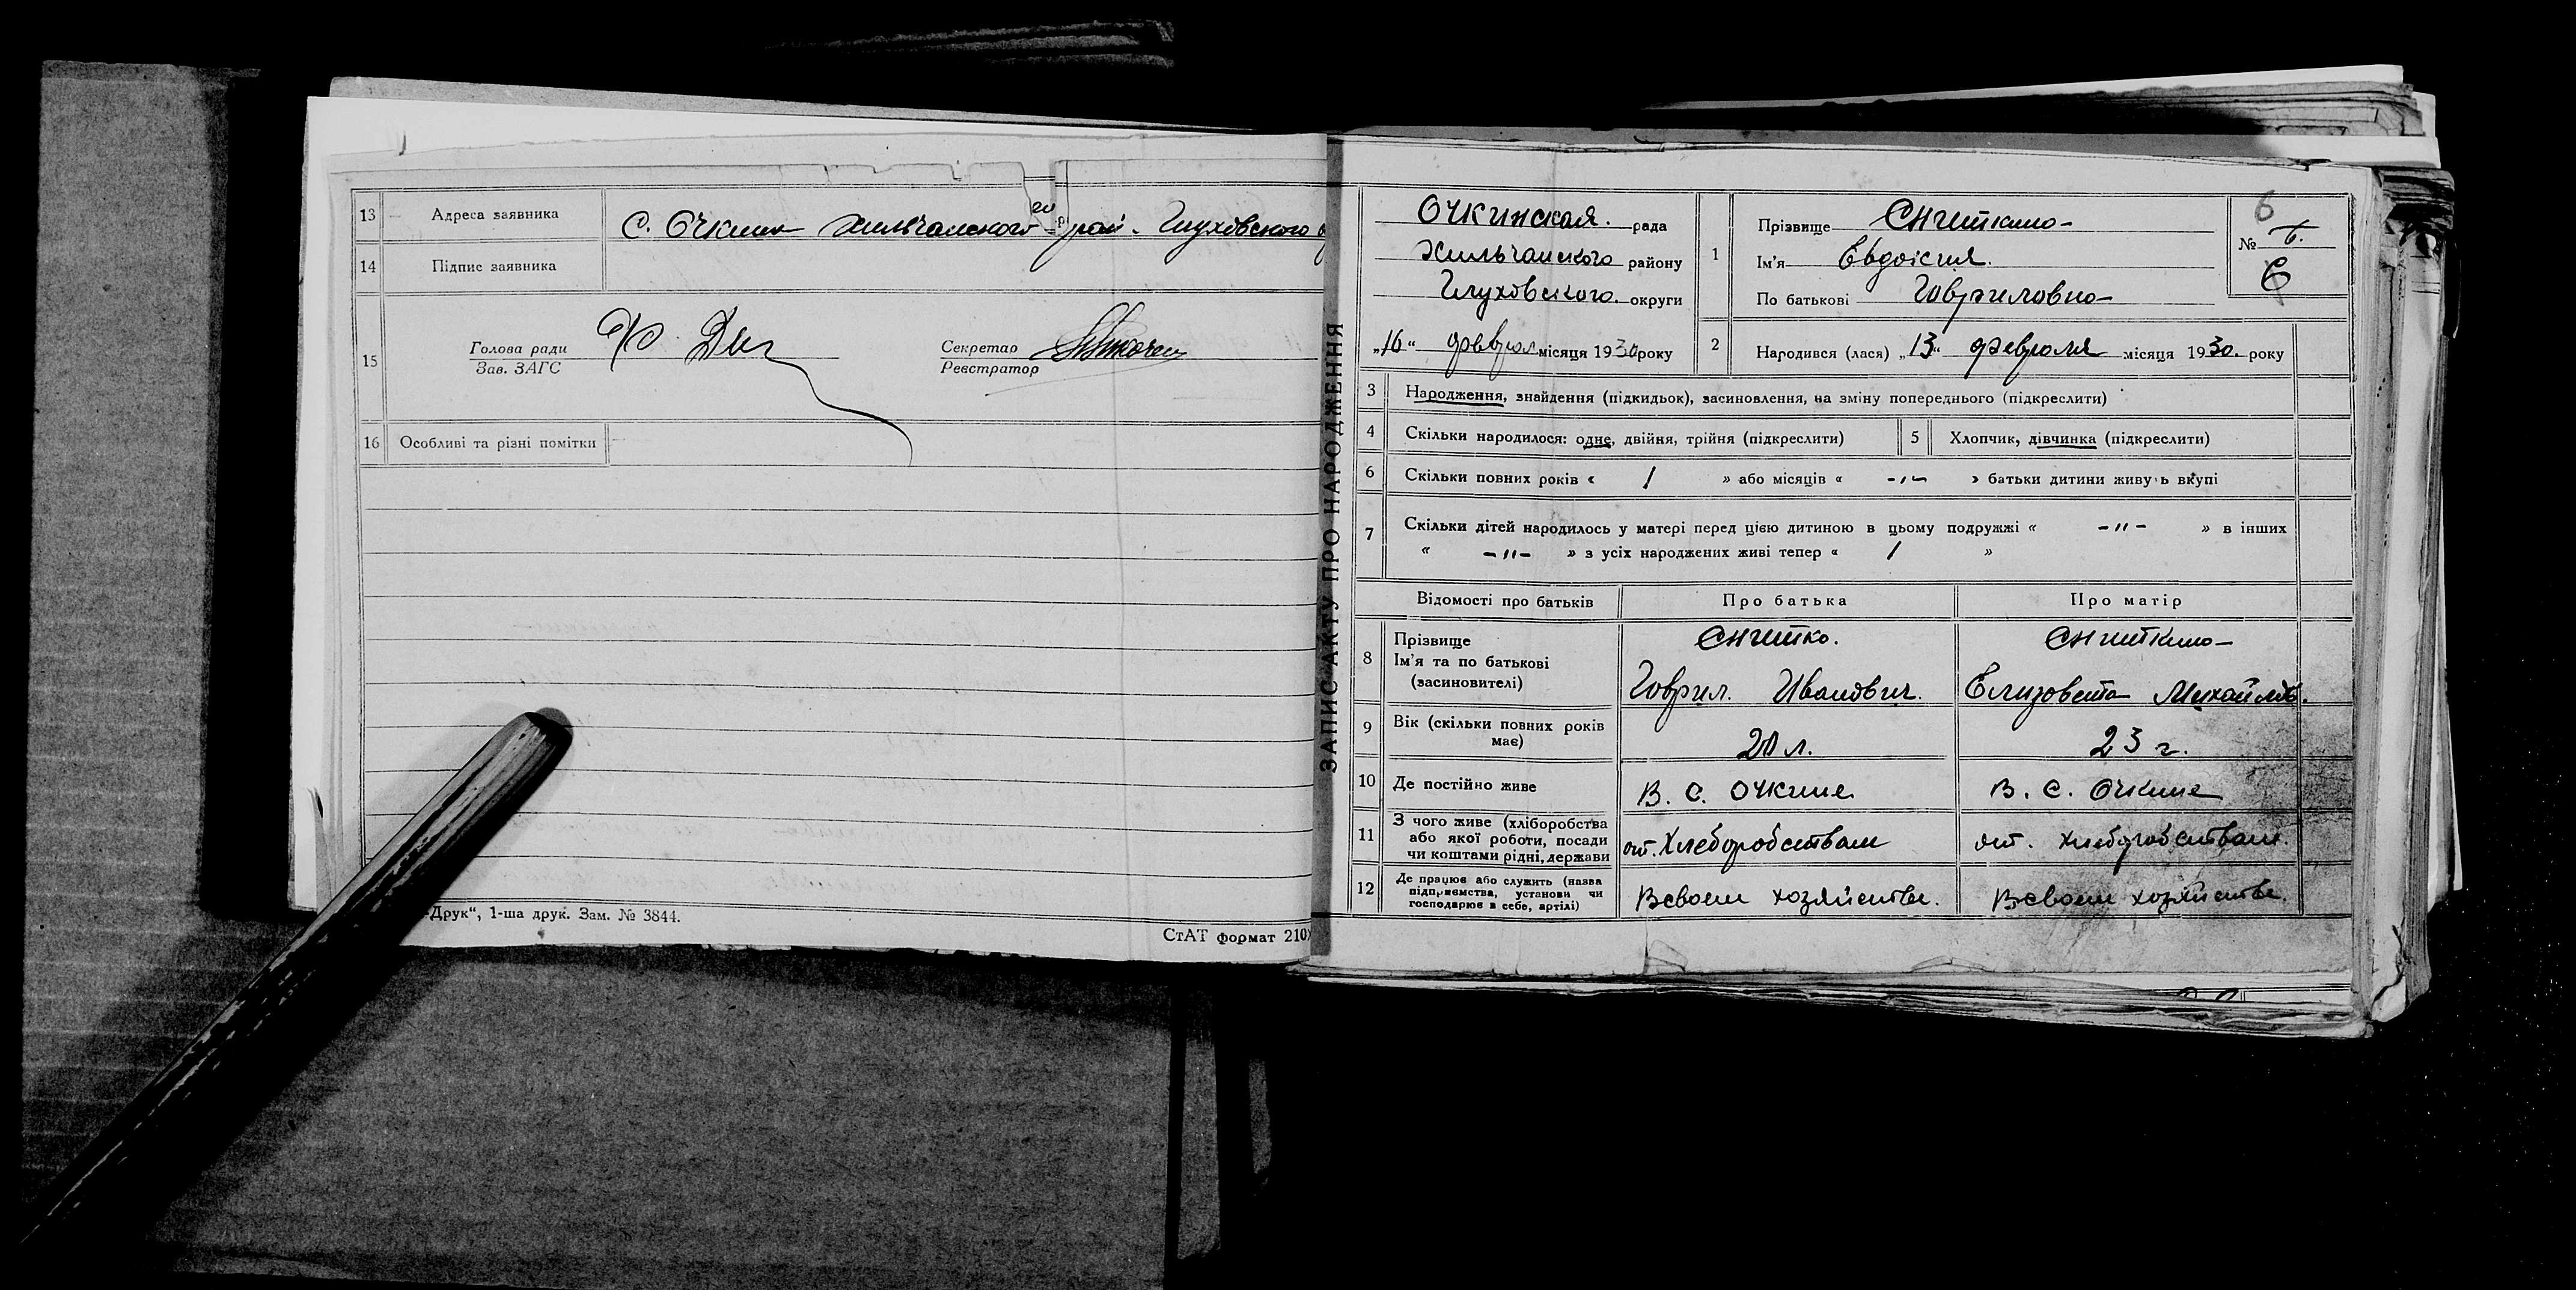 13 Адреса заявника С. Очкино Хильчанского рай. Глуховского
14 Підпис заявника
15 Голова ради
Зав. ЗАГС
Секретар
Реєстратор
16 Особливі та різні помітки
Друк“, 1-ша друк. Зам. № 3844.
СтАТ формат 210
ЗАПИС АКТУ ПРО НАРОДЖЕННЯ
Очкинская. рада
Хильчанского району
Глуховского. округи
„16“ феврал місяця 1930 року
1 Прізвище Сниткина
Ім'я Евдокия.
По батькові Гавриловна
6
№ 6.
6
2 Народився (лася) „13“ февраля місяця 1930. року
3 Народження, знайдення (підкидьок), засиновлення, на зміну попереднього (підкреслити)
4 Скільки народилося: одне, двійня, трійня (підкреслити) 5 Хлопчик, дівчинка (підкреслити)
6 Скільки повних років « 1 » або місяців « -"- » батьки дитини живуть вкупі
7 Скільки дітей народилось у матері перед цією дитиною в цьому подружжі « -"- » в інших
« -"- » з усіх народжених живі тепер « 1 »
Відомості про батьків Про батька Про матір
8 Прізвище
Ім'я та по батькові
(засиновителі)
Снитко.
Гаврил. Иванович.
Сниткина
Елизавета Михайлов.
9 Вік (скільки повних років
має)
20 л. 23 г.
10 Де постійно живе В. С. Очкине В. С. Очкине
11 З чого живе (хліборобства
або якої роботи, посади
чи коштами рідні, держави
от. Хлеборобством от. хлеборобством.
12 Де працює або служить (назва
підприємства, установи чи
господарює в себе, артілі)
В своем хозяйстве. В своем хозяйстве.